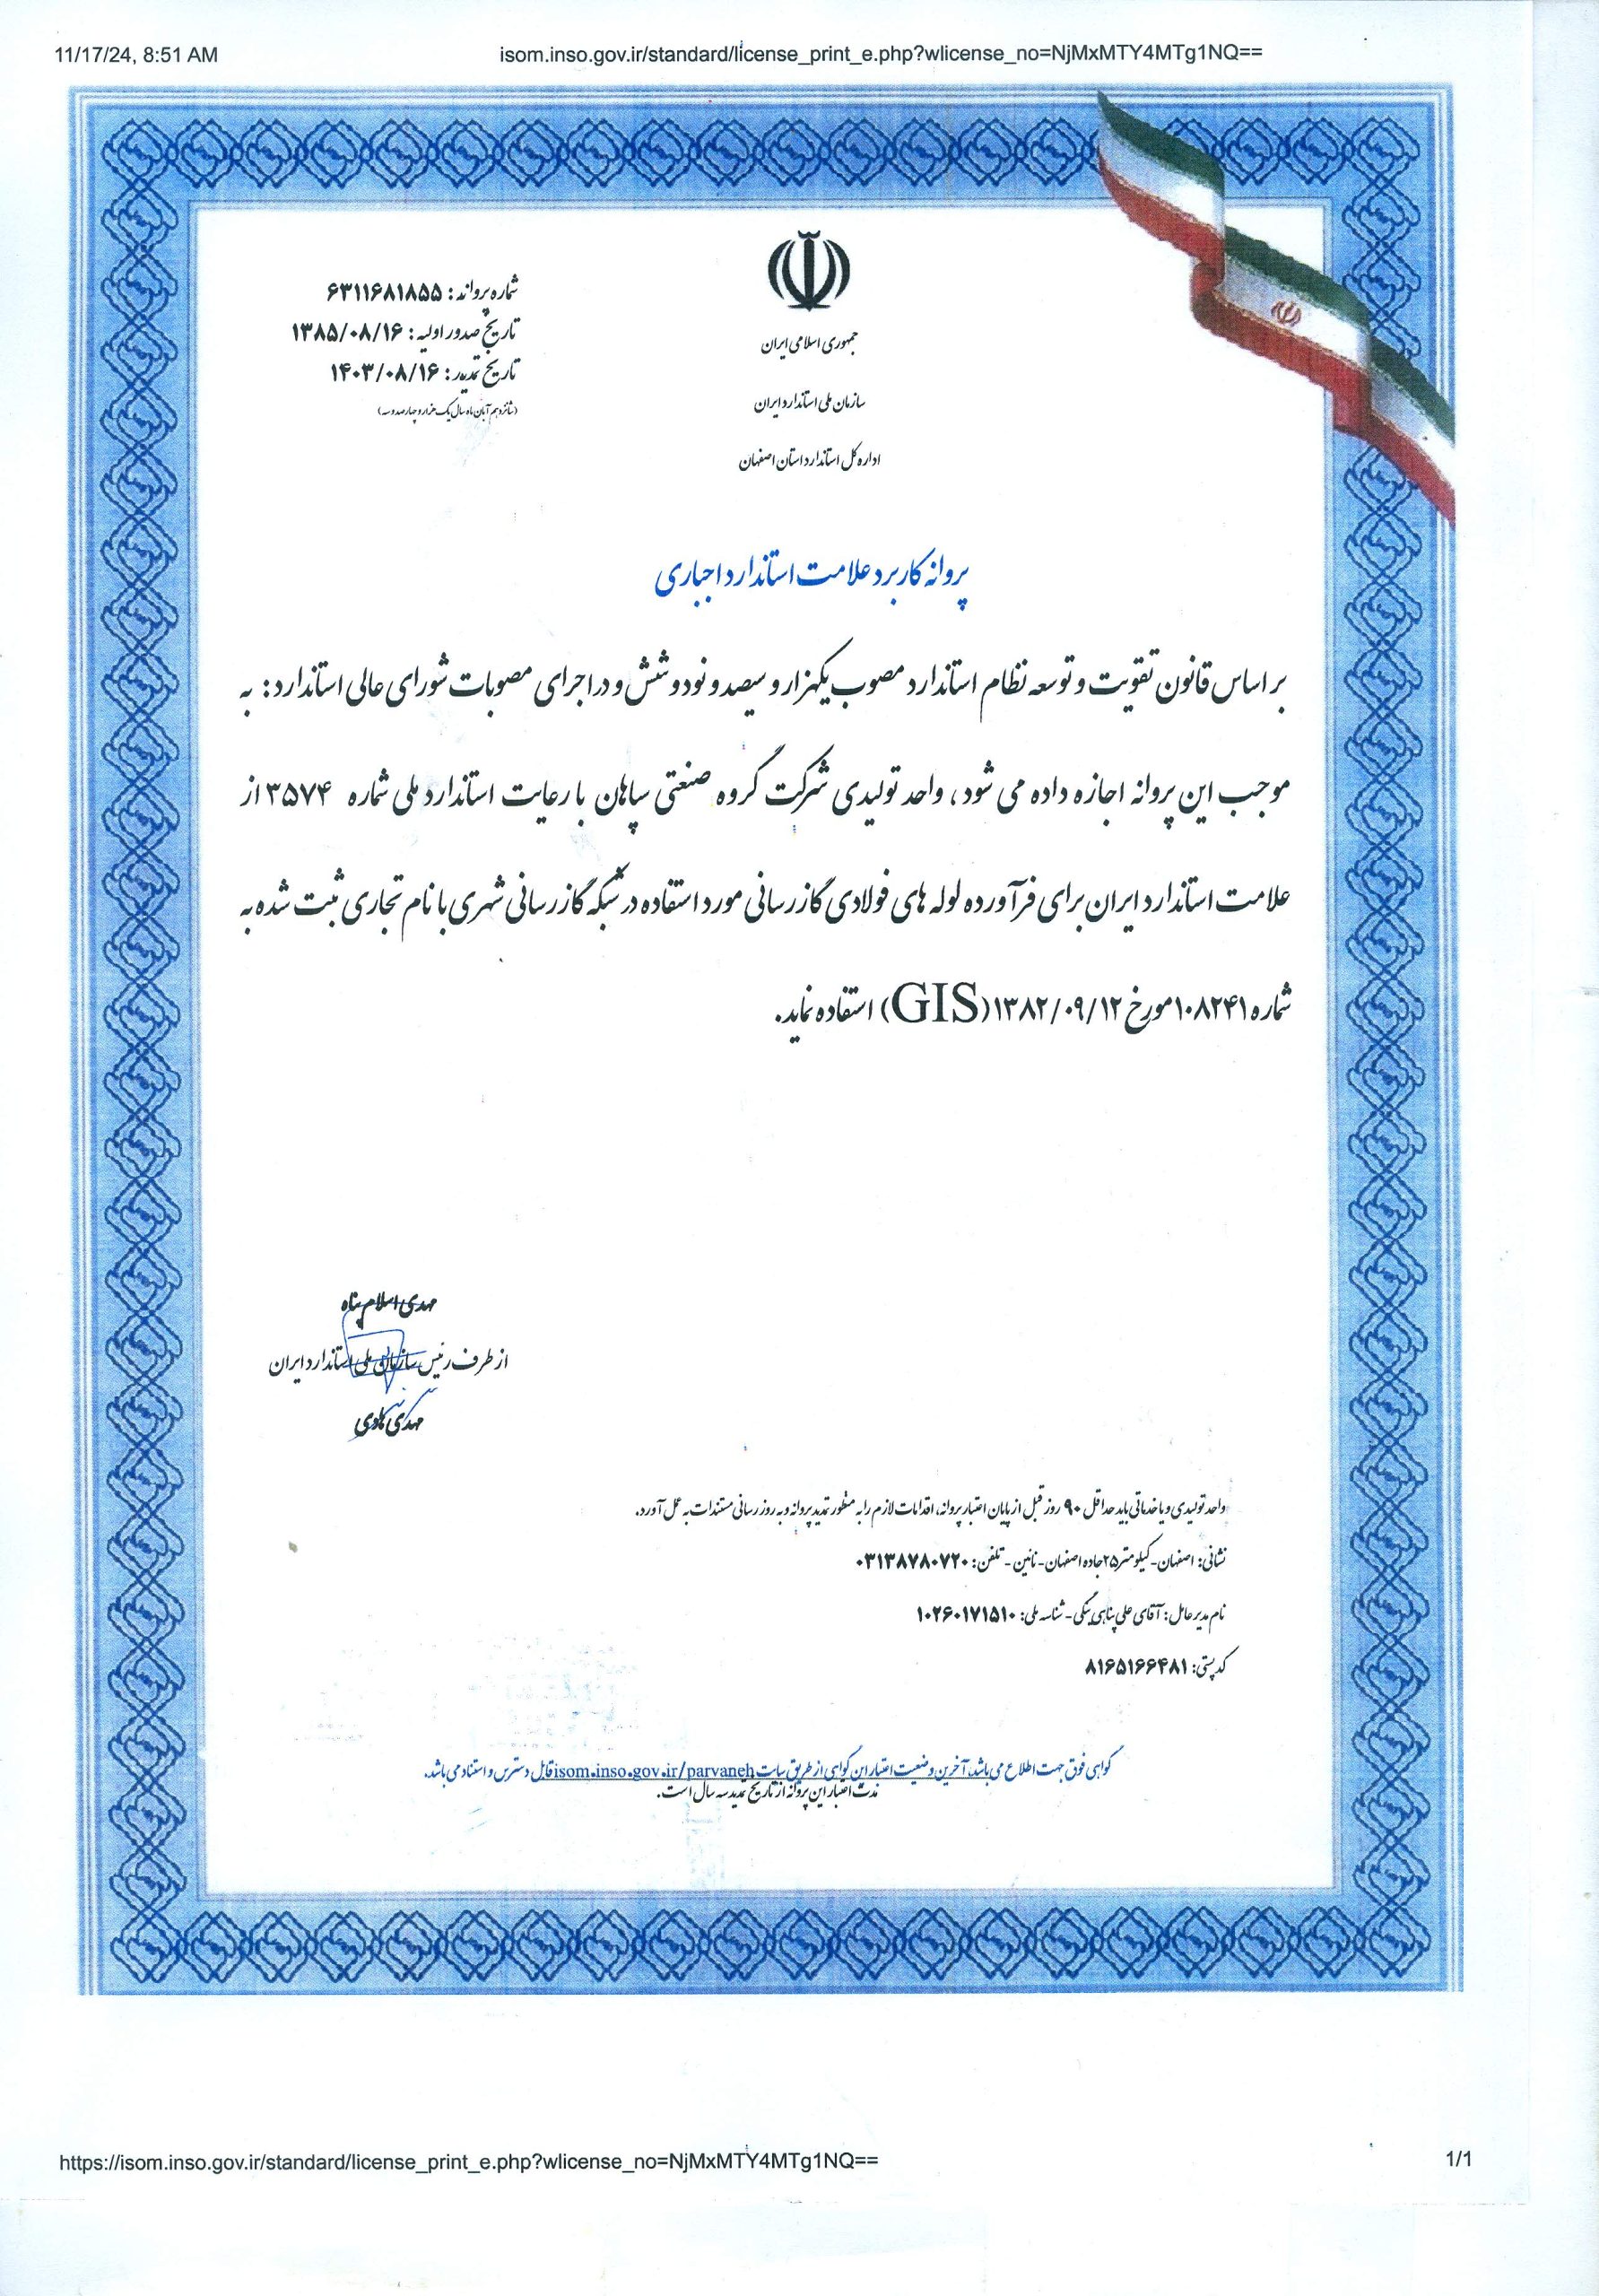 11/17/24, 8:51 AM
isom.inso.gov.ir/standard/license_print_e.php?wlicense_no=NjMxMTY4MTg1NQ==
جمهوری اسلامی ایران
سازمان ملی استاندارد ایران
اداره کل استاندارد استان اصفهان
شماره پروانه : ۶۳۱۱۶۸۱۸۵۵
تاریخ صدور اولیه : ۱۳۸۵/۰۸/۱۶
تاریخ تمدید : ۱۴۰۳/۰۸/۱۶
(شانزدهم آبان ماه سال یک هزار و چهارصد و سه)
پروانه کاربرد علامت استاندارد اجباری
بر اساس قانون تقویت و توسعه نظام استاندارد مصوب یکهزار و سیصد و نود و شش و در اجرای مصوبات شورای عالی استاندارد : به
موجب این پروانه اجازه داده می شود ، واحد تولیدی شرکت گروه صنعتی سپاهان با رعایت استاندارد ملی شماره ۳۵۷۴ از
علامت استاندارد ایران برای فرآورده لوله های فولادی گازرسانی مورد استفاده در شبکه گازرسانی شهری با نام تجاری ثبت شده به
شماره ۱۰۸۲۴۱ مورخ ۱۳۸۲/۰۹/۱۲ (GIS) استفاده نماید.
مهدی اسلام پناه
از طرف رئیس سازمان ملی استاندارد ایران
مهدی هادی
واحد تولیدی و یا خدماتی باید حداقل ۹۰ روز قبل از پایان اعتبار پروانه، اقدامات لازم را به منظور تمدید پروانه و به روز رسانی مستندات به عمل آورد.
نشانی: اصفهان - کیلومتر ۲۵ جاده اصفهان - نائین - تلفن: ۰۳۱۳۸۷۸۰۷۲۰
نام مدیر عامل : آقای علی پناهی بیگی - شناسه ملی: ۱۰۲۶۰۱۷۱۵۱۰
کد پستی: ۸۱۶۵۱۶۶۴۸۱
گواهی فوق جهت اطلاع می باشد. آخرین وضعیت اعتبار این گواهی از طریق سایت isom.inso.gov.ir/parvaneh قابل دسترس و استناد می باشد.
مدت اعتبار این پروانه از تاریخ تمدید سه سال است.
https://isom.inso.gov.ir/standard/license_print_e.php?wlicense_no=NjMxMTY4MTg1NQ==
1/1